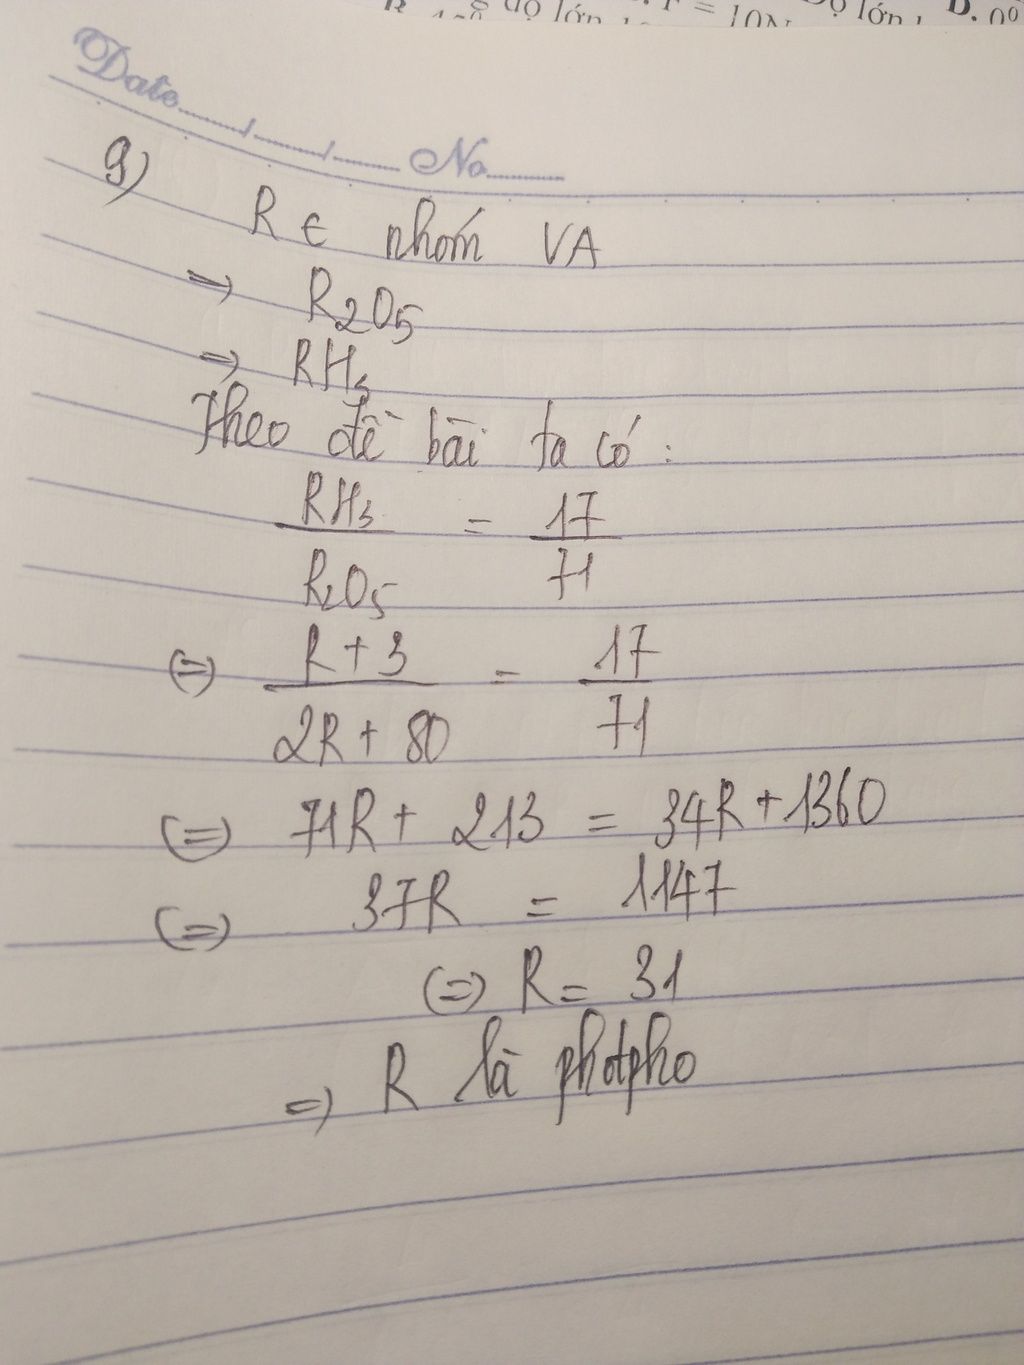 độ lớn = 10N Độ lớn D. 0°
Date / / No
9)
R ∈ nhóm VA
=> R2O5
=> RH3
Theo đề bài ta có :
RH3 / R2O5 = 17 / 71
(=) R + 3 / 2R + 80 = 17 / 71
(=) 71R + 213 = 34R + 1360
(=) 37R = 1147
(=) R = 31
=> R là photpho